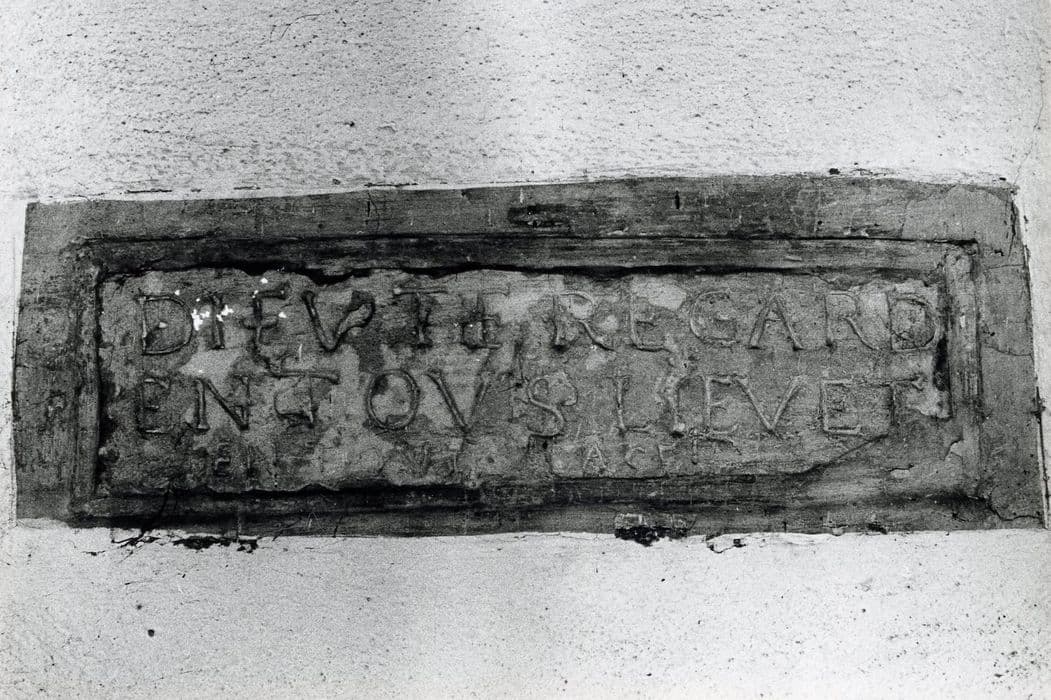 DIEV TE REGARD
EN TOVS LIEVET
EN